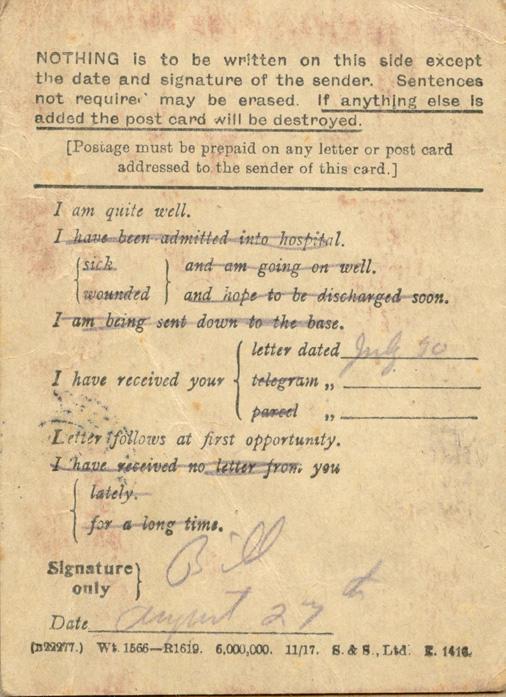 NOTHING is to be written on this side except
the date and signature of the sender. Sentences
not required may be erased. If anything else is
added the post card will be destroyed.
[Postage must be prepaid on any letter or post card
addressed to the sender of this card.]
I am quite well.
I have been admitted into hospital.
{sick } and am going on well.
{wounded } and hope to be discharged soon.
I am being sent down to the base.
{ letter dated July 30
I have received your { telegram „
{ parcel „
Letter follows at first opportunity.
I have received no letter from you
{ lately.
{ for a long time.
Signature } Bill
only }
Date August 27th
(B22277.) Wt. 1566—R1619. 6,000,000. 11/17. S. & S., Ltd. E. 1416.